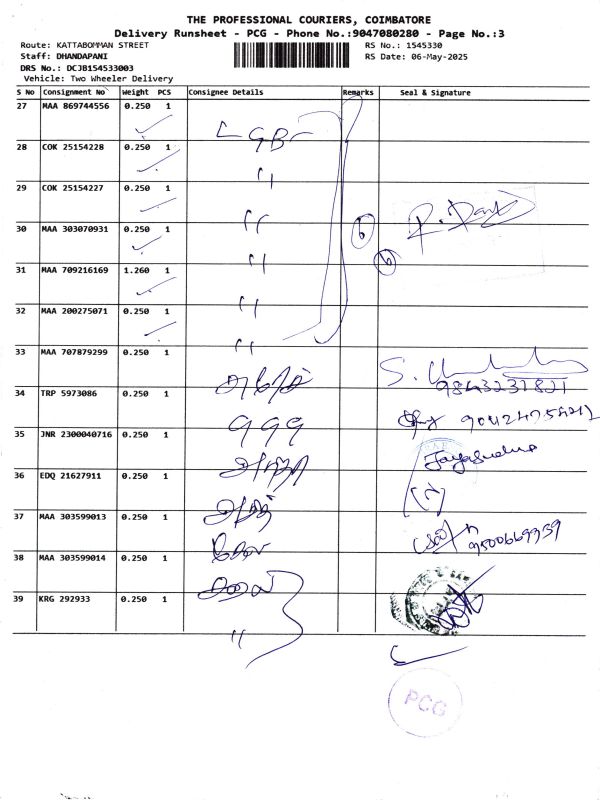 THE PROFESSIONAL COURIERS, COIMBATORE
Delivery Runsheet - PCG - Phone No.:9047080280 - Page No.:3
Route: KATTABOMMAN STREET RS No.: 1545330
Staff: DHANDAPANI RS Date: 06-May-2025
DRS No.: DCJB154533003
Vehicle: Two Wheeler Delivery
S No Consignment No Weight PCS Consignee Details Remarks Seal & Signature
27 MAA 869744556 0.250 1
LGB
28 COK 25154228 0.250 1
"
29 COK 25154227 0.250 1
"
30 MAA 303070931 0.250 1 6
"
31 MAA 709216169 1.260 1
"
32 MAA 200275071 0.250 1
"
33 MAA 707879299 0.250 1
34 TRP 5973086 0.250 1
999
35 JNR 2300040716 0.250 1
Jayasudha
36 EDQ 21627911 0.250 1
37 MAA 303599013 0.250 1
9500669939
38 MAA 303599014 0.250 1
39 KRG 292933 0.250 1
"
PCG